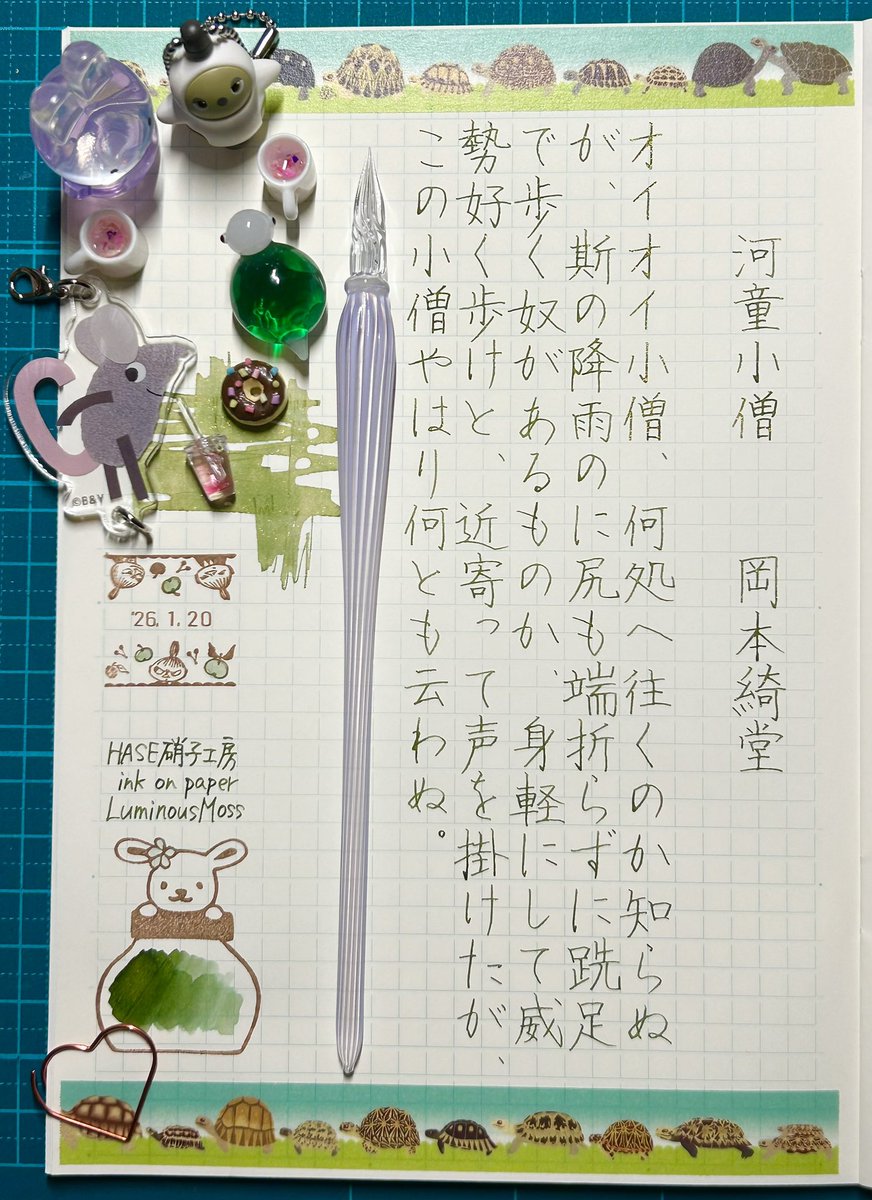 河童小僧　岡本綺堂
オイオイ小僧、何処へ往くのか知らぬ
が、斯の降雨のに尻も端折らずに跣足
で歩く奴があるものか、身軽にして威
勢好く歩けと、近寄って声を掛けたが、
この小僧やはり何とも云わぬ。
©B&Y
'26.1.20
HASE硝子工房
ink on paper
LuminousMoss